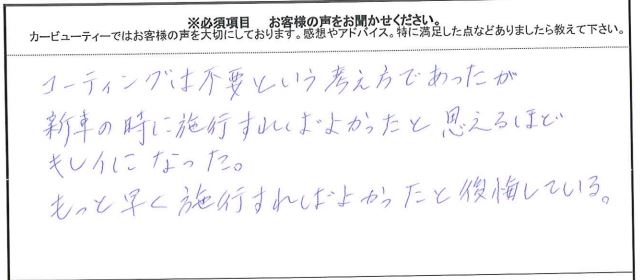 ※必須項目　お客様の声をお聞かせください。
カービューティーではお客様の声を大切にしております。感想やアドバイス。特に満足した点などありましたら教えて下さい。
コーティングは不要という考え方であったが
新車の時に施行すればよかったと思えるほど
キレイになった。
もっと早く施行すればよかったと後悔している。